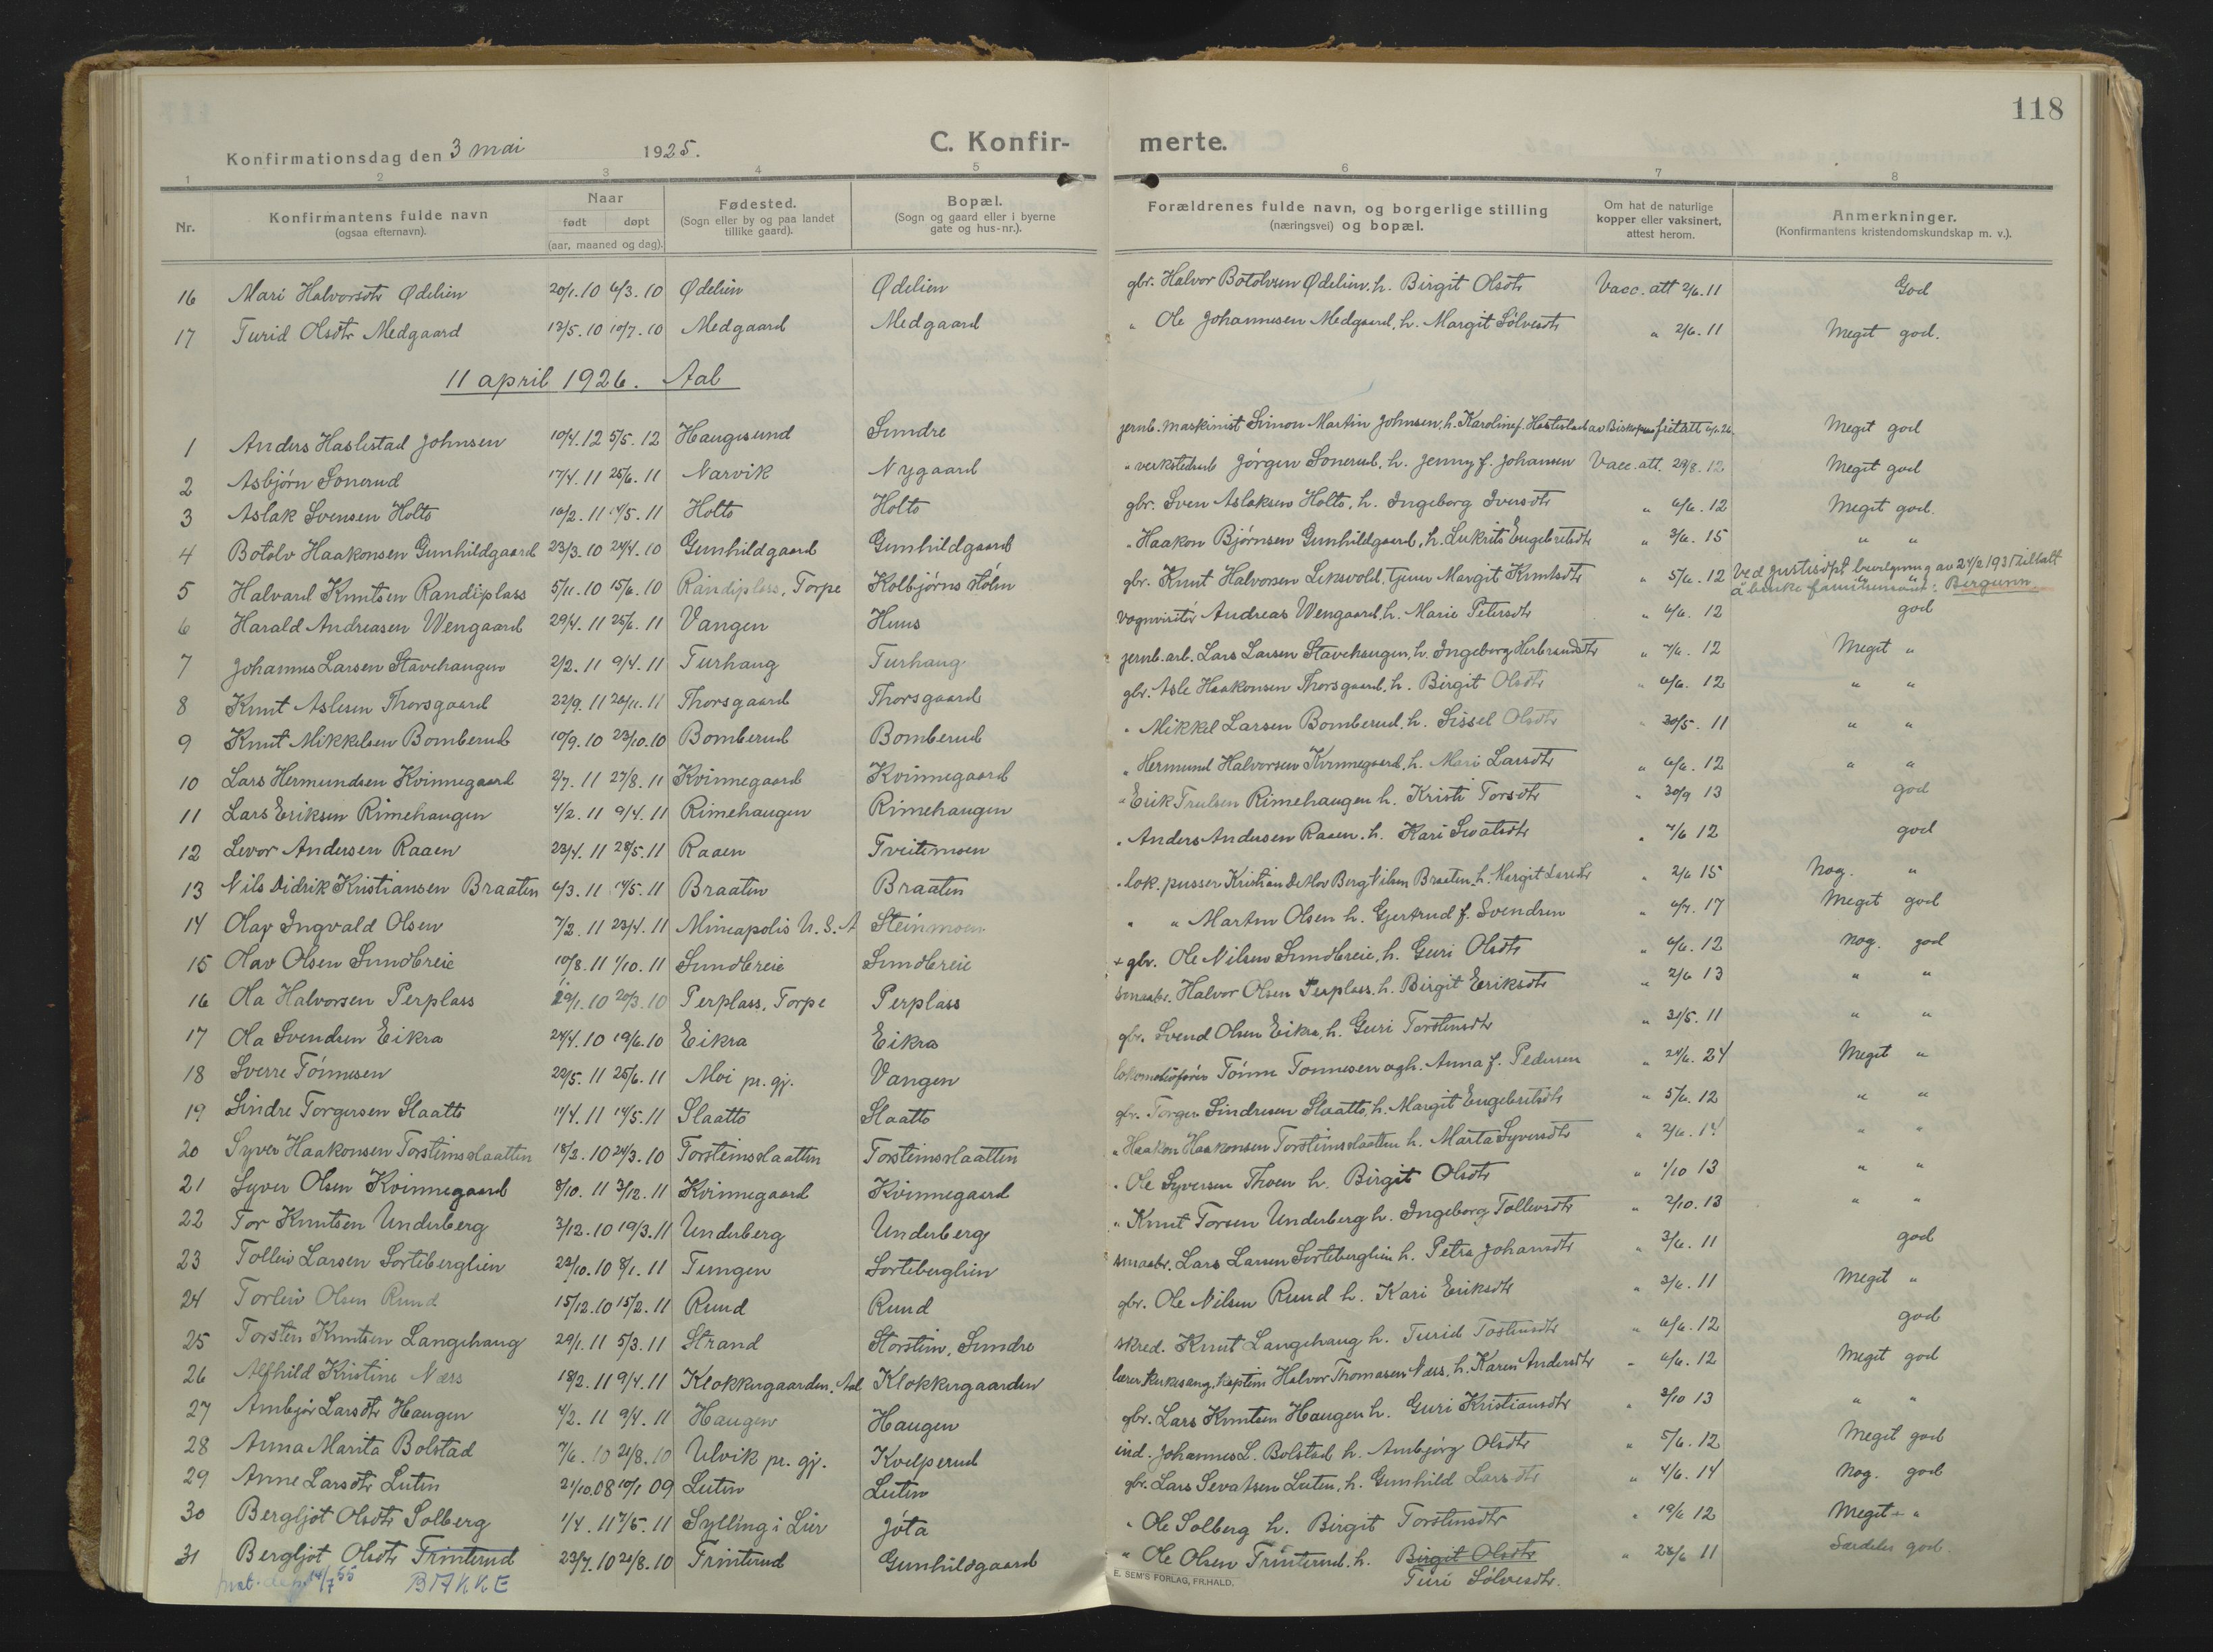 118
Konfirmationsdag den 3 mai 1925. C. Konfir- merte.
1 2 3 4 5 6 7 8
Nr. Konfirmantens fulde navn (ogsaa efternavn). Naar født døpt (aar, maaned og dag). Fødested. (Sogn eller by og paa landet tillike gaard). Bopæl. (Sogn og gaard eller i byerne gate og hus-nr.). Forældrenes fulde navn, og borgerlige stilling (næringsvei) og bopæl. Om hat de naturlige kopper eller vaksinert, attest herom. Anmerkninger. (Konfirmantens kristendomskundskap m. v.).
16 Mari Halvorsdtr Ødelien 20/1.10 6/3.10 Ødelien Ødelien gbr. Halvor Botolvsen Ødelien, h. Birgit Olsdtr Vacc. att 2/6.11 God
17 Turid Olsdtr Medgaard 12/5.10 10/7.10 Medgaard Medgaard " Ole Johannesen Medgaard, h. Margit Sølvesdtr " 2/6.11 Meget god.
11 april 1926. Aal
1 Anders Haslestad Johnsen 10/4.12 5/5.12 Haugesund Sundre jernb. maskinist Simon Martin Johnsen, h. Karoline f. Haslestad av Biskopen Meget god
2 Asbjørn Sonerud 17/4.11 25/6.11 Narvik Nygaard " verkstedarb Jørgen Sonerud, h. Jenny f. Johansen Vacc. att. 29/8.12 Meget god
3 Aslak Svensen Holto 10/2.11 14/5.11 Holto Holto gbr. Sven Aslaksen Holto, h. Ingeborg Iversdtr " 6/6.12 Meget god.
4 Botolv Haakonsen Gunhildgaard 23/3.10 24/4.10 Gunhildgaard Gunhildgaard " Haakon Bjørnsen Gunhildgaard, h. Lukrits Engebretsdtr " 3/6.15 " "
5 Halvard Knutsen Randiplass 5/11.10 15/6.10 Randiplass, Torpe Kolbjørns Holm gbr. Knut Halvorsen Leksvold, Margit Knutsdtr " 5/6.12 Ved justisdpt bevilgning av 24/2 193 tillatt
å bruke familienavnet: Bergunn
6 Harald Andreasen Wengaard 29/4.11 25/6.11 Vangen Huus vognvisitør Andreas Wengaard, h. Marie Petersdtr " 6/6.12 god
7 Johannes Larsen Stavehaugen 2/2.11 9/4.11 Turhaug Turhaug jernb. arb. Lars Larsen Stavehaugen, h. Ingeborg Herbrandsdtr " 7/6.12 Meget "
8 Knut Aslesen Thorsgaard 22/9.11 26/11.11 Thorsgaard Thorsgaard gbr. Asle Haakonsen Thorsgaard, h. Birgit Olsdtr " 6/6.12 " "
9 Knut Mikkelsen Bomberud 10/9.10 23/10.10 Bomberud Bomberud " Mikkel Larsen Bomberud, h. Sissel Olsdtr " 30/5.11 " "
10 Lars Hermundsen Kvinnegaard 2/7.11 27/8.11 Kvinnegaard Kvinnegaard " Hermund Halvorsen Kvinnegaard, h. Mari Larsdtr " 6/6.12 " "
11 Lars Eriksen Rimehaugen 4/2.11 9/4.11 Rimehaugen Rimehaugen " Erik Trulsen Rimehaugen h. Kristi Torsdtr " 30/9 13 god
12 Levor Andersen Raaen 23/4.11 28/5.11 Raaen Tveitemoen " Anders Andersen Raaen, h. Kari Sevatsdtr " 7/6 12 god
13 Nils Didrik Kristiansen Braaten 6/3.11 14/5.11 Braaten Braaten " lok. pusser Kristian Detlov Berg Nilsen Braaten, h. Margit Larsdtr " 2/6 15 Nog. "
14 Olav Ingvald Olsen 7/2.11 23/4.11 Mineapolis U.S.A Steinmoen " " Martin Olsen h. Gjertrud f. Svendsen " 6/7.17 Meget god
15 Olav Olsen Sundbreie 10/8.11 1/10.11 Sundbreie Sundbreie + gbr. Ole Nilsen Sundbreie, h. Guri Olsdtr " 6/6.12 Nog. god
16 Ola Halvorsen Perplass 29/1.10 20/3.10 Perplass, Torpe Perplass smaabr. Halvor Olsen Perplass, h. Birgit Eriksdtr " 2/6 13 " "
17 Ola Svendsen Eikra 24/4.10 19/6.10 Eikra Eikra gbr. Svend Olsen Eikra, h. Guri Torstensdtr " 31/5.11 " "
18 Sverre Tønnesen 22/5.11 25/6.11 Moi pr. gj. Vangen lokomotivfører Tønne Tønnesen og h. Anna f. Pedersen " 24/6.24 Meget "
19 Sindre Torgersen Slaatto 14/4.11 14/5.11 Slaatto Slaatto gbr. Torger Sindresen Slaatto, h. Margit Engebretsdtr " 5/6.12 " "
20 Syver Haakonsen Torsteinslaatten 18/2.10 24/3.10 Torsteinslaatten Torsteinslaatten " Haakon Haakonsen Torsteinslaatten h. Marta Syversdtr " 2/6.14 " "
21 Syver Olsen Kvinnegaard 8/10.11 3/12.11 Kvinnegaard Kvinnegaard " Ole Syversen Thoen h. Birgit Olsdtr " 1/10 13 " "
22 Tor Knutsen Underberg 3/12.10 19/3.11 Underberg Underberg " Knut Torsen Underberg h. Ingeborg Tollevsdtr " 2/10.13 " "
23 Tolleiv Larsen Sorteberglien 23/10.10 8/1.11 Tungen Sorteberglien smaabr. Lars Larsen Sorteberglien h. Petra Johansdtr " 3/6.11 god
24 Torleiv Olsen Rund 15/12.10 15/2.11 Rund Rund gbr. Ole Nilsen Rund h. Kari Eriksdtr " 3/6.11 Meget "
25 Torsten Knutsen Langehaug 29/1.11 5/3.11 Strand Storstein, Sundre skred. Knut Langehaug h. Turid Tostensdtr " 6/6.12 god
26 Alfhild Kristine Næss 18/2.11 9/4.11 Klokkergaarden, Aal Klokkergaarden lærer, kirkesang, kaptein Halvor Thomasen Næss, h. Karen Andersdtr " 6/6.12 Meget god
27 Ambjør Larsdtr Haugen 4/2.11 9/4.11 Haugen Haugen gbr. Lars Knutsen Haugen h. Guri Kristiansdtr " 3/10 13 " "
28 Anna Marita Bolstad 7/6.10 21/8.10 Ulvik pr. gj. Kvelprud ind. Johannes L. Bolstad h. Ambjørg Olsdtr " 5/6.12 Meget god
29 Anne Larsdtr Luten 21/10.08 10/1 09 Luten Luten gbr. Lars Sevatsen Luten, h. Gunhild Larsdtr " 4/6.14 Nog. god
30 Bergljot Olsdtr Solberg 1/4.11 7/5.11 Sylling i Lier Jota " Ole Solberg h. Birgit Torstensdtr " 19/6 12 Meget "
31 Bergljot Olsdtr Trinterud 23/7.10 21/8.10 Trinterud Gunhildgaard " Ole Olsen Trinterud, h. Birgit Olsdtr " 28/6 11 Særdeles god.
14/7 55 BAKKE Turi Sølvesdtr.
E. SEM'S FORLAG, FR.HALD.